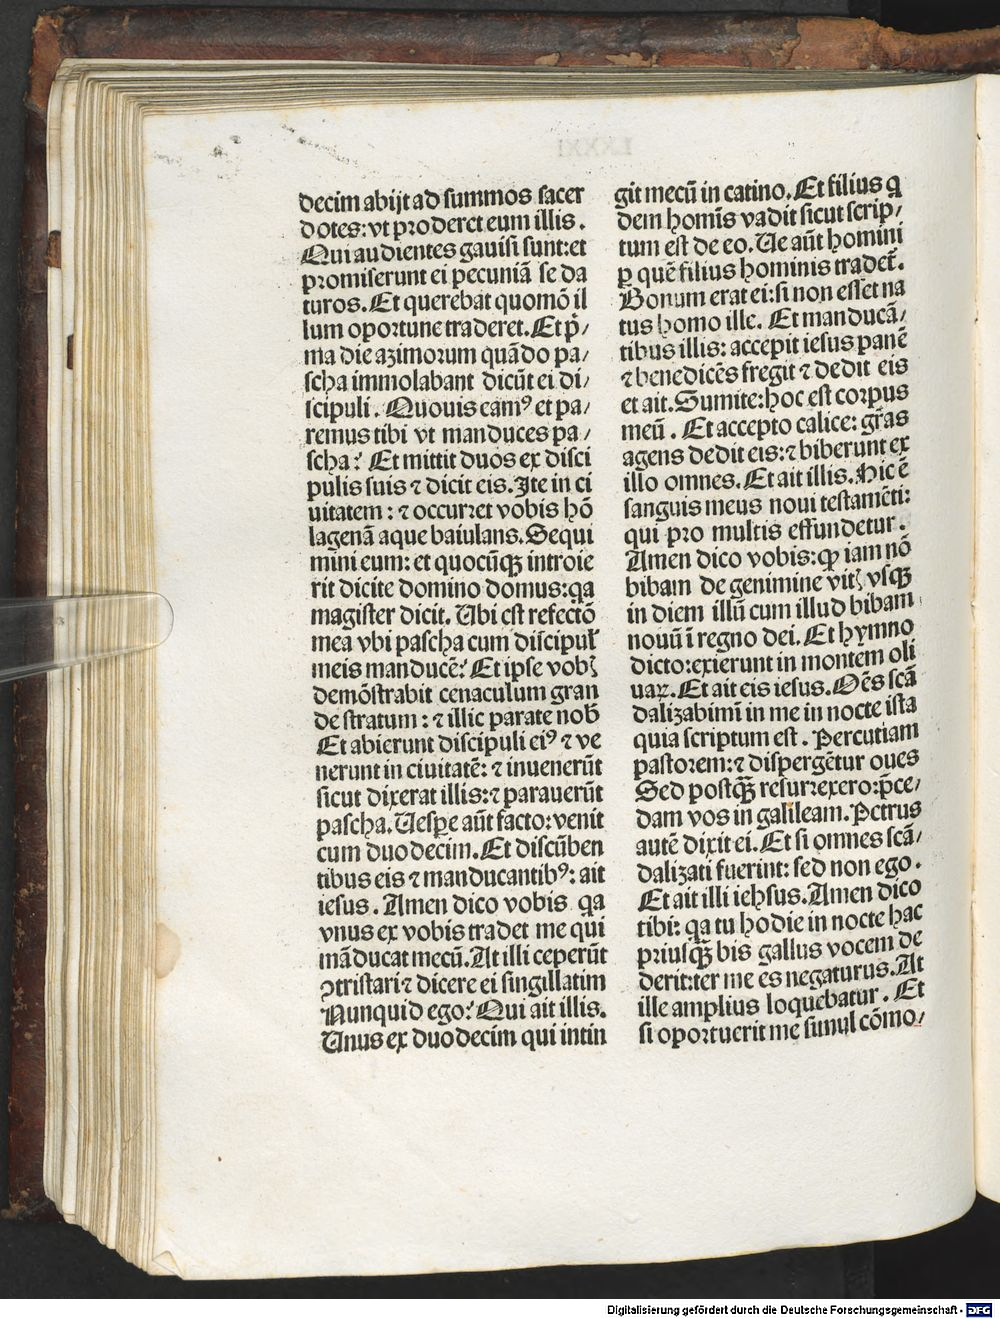 decim abijt ad summos sacer
dotes: vt proderet eum illis.
Qui audientes gauisi sunt: et
promiserunt ei pecuniā se da
turos. Et querebat quomō il
lum oportune traderet. Et p̄/
ma die azimorum quādo pa/
scha immolabant dicūt ei di/
scipuli. Quo uis eamꝰ et pa/
remus tibi vt manduces pa/
scha? Et mittit duos ex disci
pulis suis ⁊ dicit eis. Ite in ci
uitatem: ⁊ occurret vobis hō
lagenā aque baiulans. Sequi
mini eum: et quocūqꝫ introie
rit dicite domino domus: qa
magister dicit. Ubi est refectō
mea vbi pascha cum discipul̄
meis manducē? Et ipse vobꝭ
demōstrabit cenaculum gran
de stratum: ⁊ illic parate nob̄
Et abierunt discipuli eiꝰ ⁊ ve
nerunt in ciuitatē: ⁊ inuenerūt
sicut dixerat illis: ⁊ parauerūt
pascha. Uesꝑe aūt facto: venit
cum duodecim. Et discūben
tibus eis ⁊ manducantibꝰ: ait
iesus. Amen dico vobis qa
vnus ex vobis tradet me qui
māducat mecū. At illi ceperūt
ꝯtristari ⁊ dicere ei singillatim
Nunquid ego? Qui ait illis.
Unus ex duodecim qui intin
git mecū in catino. Et filius q
dem homīs vadit sicut scrip/
tum est de eo. Ue aūt homini
ꝑ quē filius hominis tradet̄.
Bonum erat ei: si non esset na
tus homo ille. Et manducā/
tibus illis: accepit iesus panē
⁊ benedicēs fregit ⁊ dedit eis
et ait. Sumite: hoc est corpus
meū. Et accepto calice: gr̄as
agens dedit eis: ⁊ biberunt ex
illo omnes. Et ait illis. Hic ē
sanguis meus noui testamēti:
qui pro multis effundetur.
Amen dico vobis: ꝙ iam nō
bibam de genimine vitꝭ vsqꝫ
in diem illū cum illud bibam
nouū ī regno dei. Et hymno
dicto: exierunt in montem oli
uaꝝ. Et ait eis iesus. Oēs scā
dalizabimī in me in nocte ista
quia scriptum est. Percutiam
pastorem: ⁊ dispergētur oues
Sed postqꝫ̄ resurrexero: p̄ce/
dam vos in galileam. Petrus
autē dixit ei. Et si omnes scā/
dalizati fuerint: sed non ego.
Et ait illi iehsus. Amen dico
tibi: qa tu hodie in nocte hac
priusqꝫ̄ bis gallus vocem de
derit: ter me es negaturus. At
ille amplius loquebatur. Et
si oportuerit me simul cōmo/
Digitalisierung gefördert durch die Deutsche Forschungsgemeinschaft - DFG